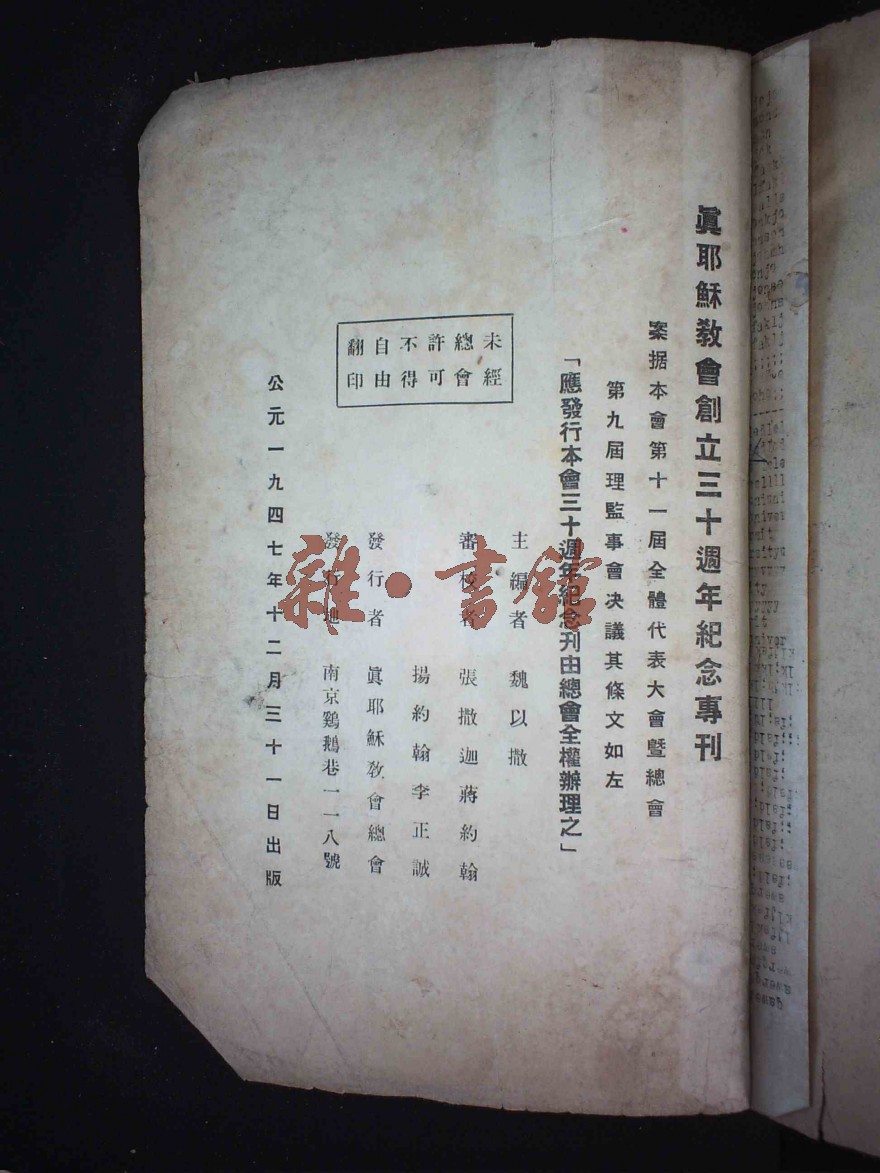 眞耶穌敎會創立三十週年紀念專刊
案据本會第十一屆全體代表大會暨總會
第九屆理監事會决議其條文如左
「應發行本會三十週年紀念刊由總會全權辦理之」
主編者　魏以撒
審核者　張撒迦蔣約翰
揚約翰李正誠
發行者　眞耶穌敎會總會
發行地　南京鷄鵝巷一一八號
未經
總會
許可
不得
自由
翻印
公元一九四七年十二月三十一日出版
雜·書館